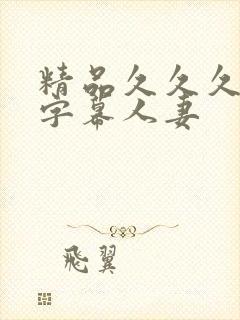 精品久久久
字幕人妻
飛翼